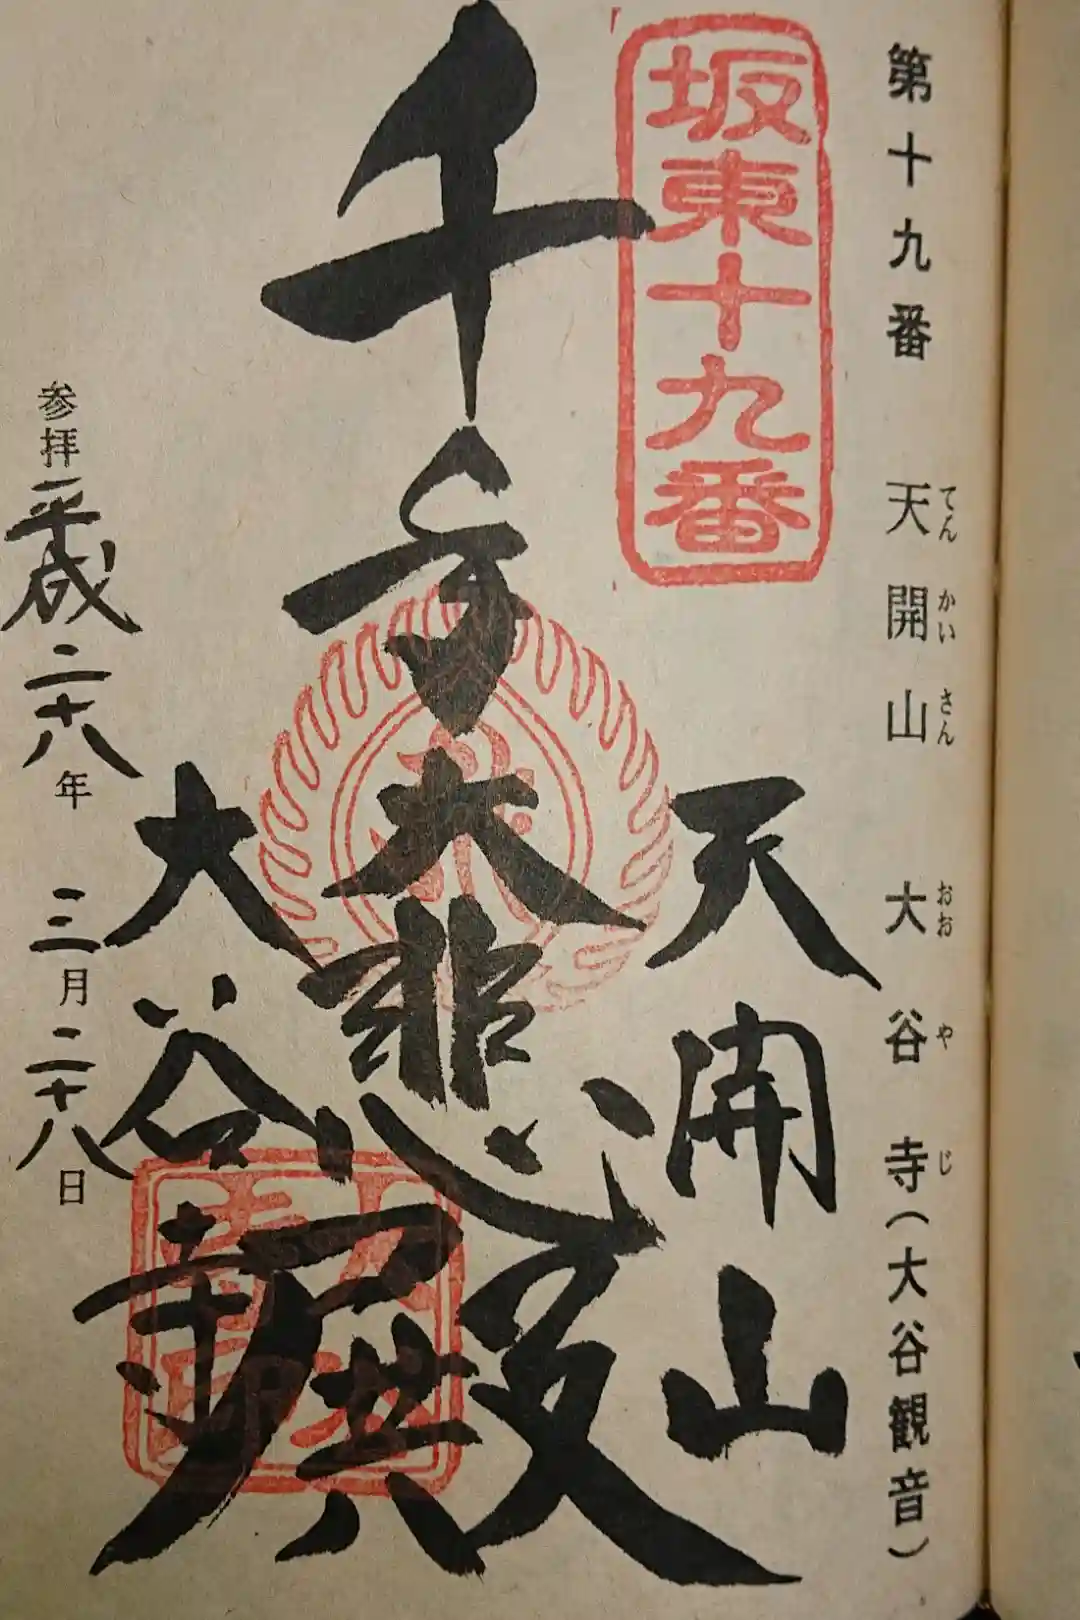 第十九番 天開山 大谷寺（大谷観音）
てんかいさん おおやじ
坂東十九番
天開山
千手大悲殿
大谷寺
参拝平成二十八年三月二十八日